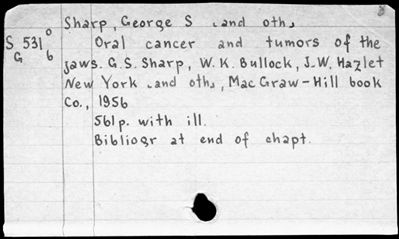 Sharp, George S. and oth.
S 531 0
G 6
Oral cancer and tumors of the
jaws. G.S. Sharp, W.K. Bullock, J.W. Hazlet
New York and oth., Mac Graw-Hill book
Co., 1956
561p. with ill.
Bibliogr at end of chapt.